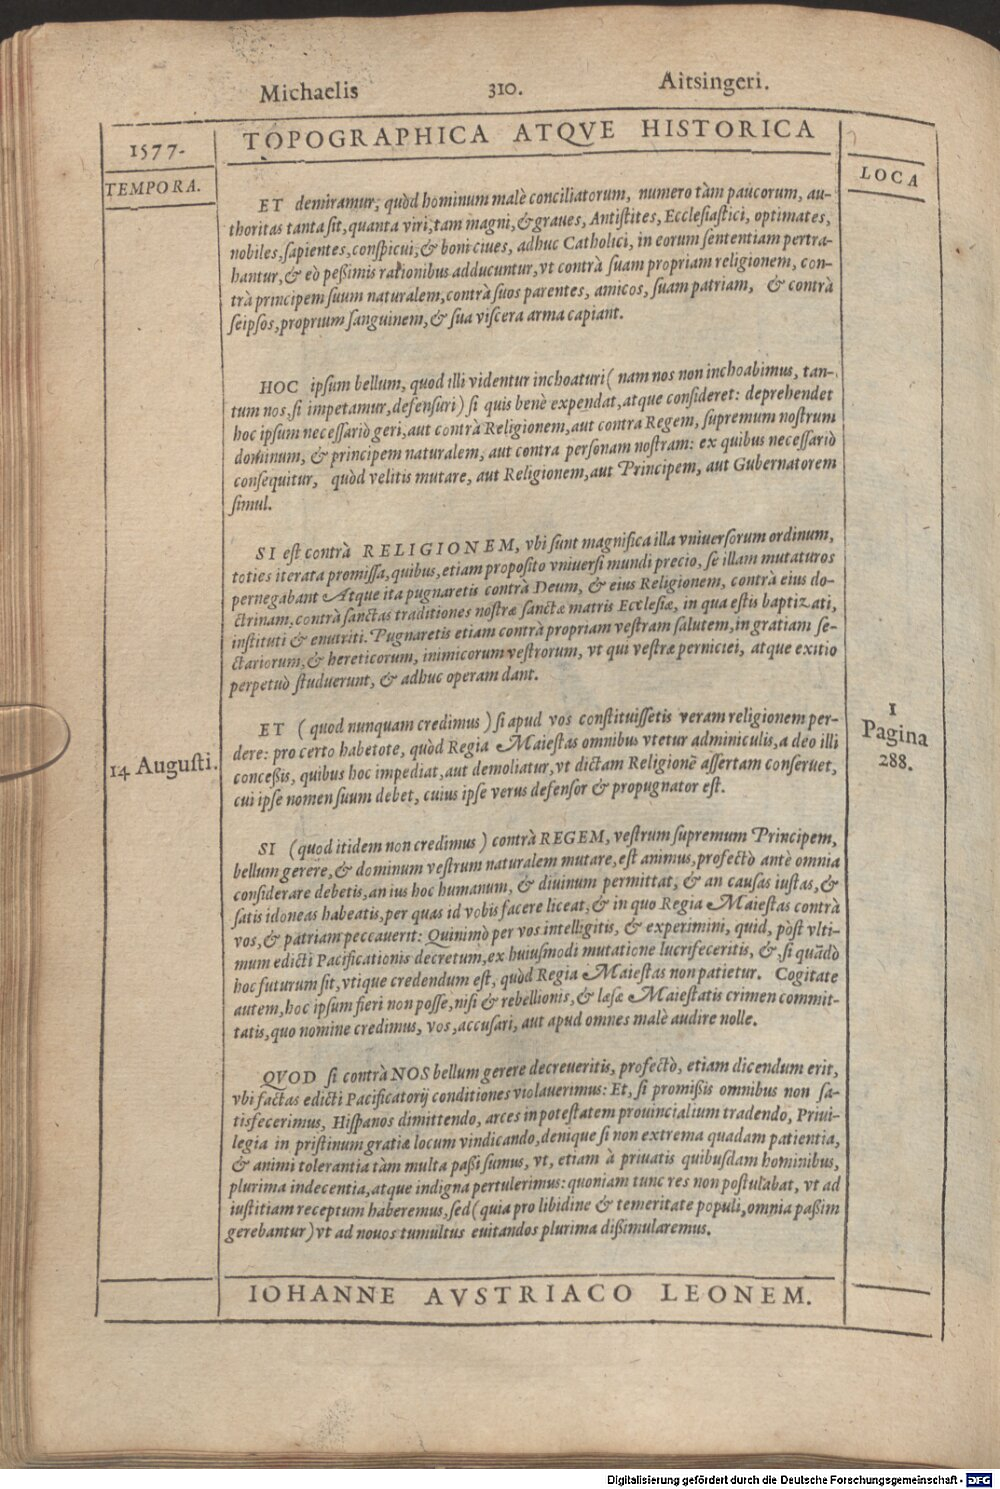 Michaelis 310. Aitsingeri.
1577. TOPOGRAPHICA ATQVE HISTORICA
TEMPORA. LOCA
ET demiramur, quòd hominum malè conciliatorum, numero tàm paucorum, au-
thoritas tanta sit, quanta viri, tam magni, & graues, Antistites, Ecclesiastici, optimates,
nobiles, sapientes, conspicui, & boni ciues, adhuc Catholici, in eorum sententiam pertra-
hantur, & eò peßimis rationibus adducuntur, vt contrà suam propriam religionem, con-
trà principem suum naturalem, contrà suos parentes, amicos, suam patriam, & contrà
seipsos, proprium sanguinem, & sua viscera arma capiant.
HOC ipsum bellum, quod illi videntur inchoaturi ( nam nos non inchoabimus, tan-
tum nos, si impetamur, defensuri ) si quis benè expendat, atque consideret: deprehendet
hoc ipsum necessariò geri, aut contrà Religionem, aut contra Regem, supremum nostrum
dominum, & principem naturalem, aut contra personam nostram: ex quibus necessariò
consequitur, quòd velitis mutare, aut Religionem, aut Principem, aut Gubernatorem
simul.
SI est contrà RELIGIONEM, vbi sunt magnifica illa vniuersorum ordinum,
toties iterata promissa, quibus, etiam proposito vniuersi mundi precio, se illam mutaturos
pernegabant Atque ita pugnaretis contrà Deum, & eius Religionem, contrà eius do-
ctrinam, contrà sanctas traditiones nostræ sanctæ matris Ecclesiæ, in qua estis baptizati,
instituti & enutriti. Pugnaretis etiam contrà propriam vestram salutem, in gratiam se-
ctariorum, & hereticorum, inimicorum vestrorum, vt qui vestræ perniciei, atque exitio
perpetuò studuerunt, & adhuc operam dant.
ET ( quod nunquam credimus ) si apud vos constituissetis veram religionem per-
dere: pro certo habetote, quòd Regia Maiestas omnibus vtetur adminiculis, a deo illi
conceßis, quibus hoc impediat, aut demoliatur, vt dictam Religionē assertam conseruet,
cui ipse nomen suum debet, cuius ipse verus defensor & propugnator est.
14 Augusti.
1
Pagina
288.
SI ( quod itidem non credimus ) contrà REGEM, vestrum supremum Principem,
bellum gerere, & dominum vestrum naturalem mutare, est animus, profectò antè omnia
considerare debetis, an ius hoc humanum, & diuinum permittat, & an causas iustas, &
satis idoneas habeatis, per quas id vobis facere liceat, & in quo Regia Maiestas contrà
vos, & patriam peccauerit: Quinimò per vos intelligitis, & experimini, quid, pòst vlti-
mum edicti Pacificationis decretum, ex huiusmodi mutatione lucrifeceritis, & si quādò
hoc futurum sit, vtique credendum est, quòd Regia Maiestas non patietur. Cogitate
autem, hoc ipsum fieri non posse, nisi & rebellionis, & læsæ Maiestatis crimen commit-
tatis, quo nomine credimus, vos, accusari, aut apud omnes malè audire nolle.
QVOD si contrà NOS bellum gerere decreueritis, profectò, etiam dicendum erit,
vbi factas edicti Pacificatorij conditiones violauerimus: Et, si promißis omnibus non sa-
tisfecerimus, Hispanos dimittendo, arces in potestatem prouincialium tradendo, Priui-
legia in pristinum gratiæ locum vindicando, denique si non extrema quadam patientia,
& animi tolerantia tàm multa paßi sumus, vt, etiam à priuatis quibusdam hominibus,
plurima indecentia, atque indigna pertulerimus: quoniam tunc res non postulabat, vt ad
iustitiam receptum haberemus, sed ( quia pro libidine & temeritate populi, omnia paßim
gerebantur ) vt ad nouos tumultus euitandos plurima dißimularemus.
IOHANNE AVSTRIACO LEONEM.
Digitalisierung gefördert durch die Deutsche Forschungsgemeinschaft - DFG